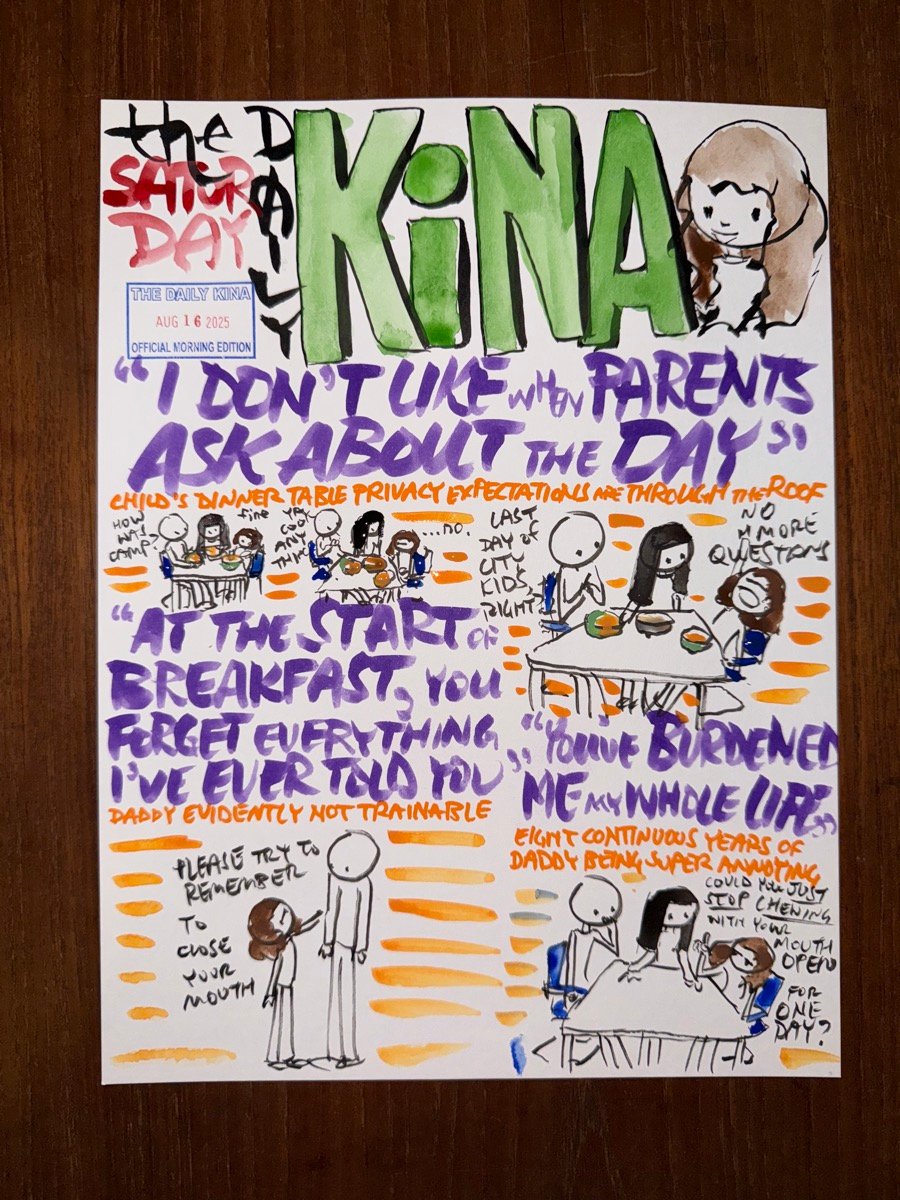 the DAILY
SATUR
DAY
KiNA
THE DAILY KINA
AUG 16 2025
OFFICIAL MORNING EDITION
"I DON'T LIKE WHEN PARENTS
ASK ABOUT THE DAY"
CHILD'S DINNER TABLE PRIVACY EXPECTATIONS ARE THROUGH THE ROOF
HOW
WAS
CAMP?
fine
YAY
COOL
ANY
THING
...NO.
LAST
DAY OF
CITY
KIDS,
RIGHT?
NO
MORE
QUESTIONS
"AT THE START OF
BREAKFAST, YOU
FORGET EVERYTHING
I'VE EVER TOLD YOU"
DADDY EVIDENTLY NOT TRAINABLE
PLEASE TRY TO
REMEMBER
TO
CLOSE
YOUR
MOUTH
"YOU'VE BURDENED
ME MY WHOLE LIFE"
EIGHT CONTINUOUS YEARS OF
DADDY BEING SUPER ANNOYING
COULD YOU JUST
STOP CHEWING
WITH YOUR
MOUTH
OPEN
FOR
ONE
DAY?